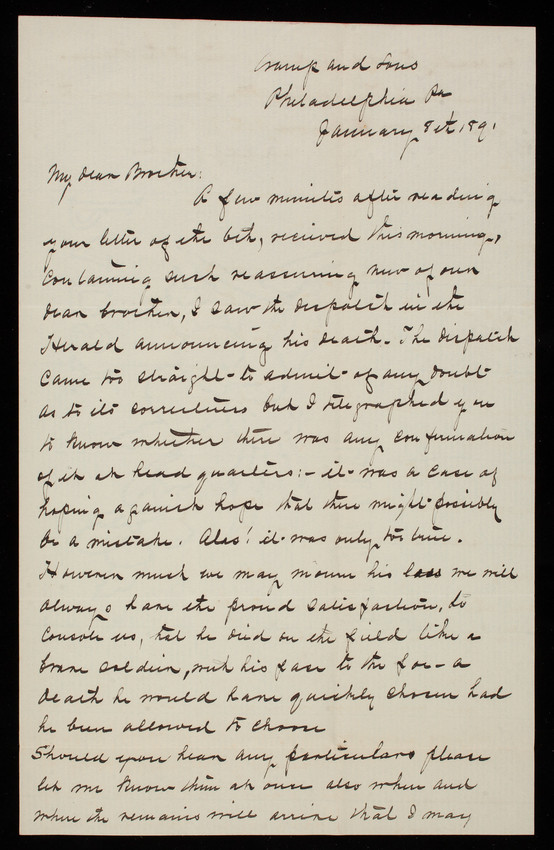 Cramp and Sons
Philadelphia Pa
January 8th 1891
My dear Brother:
A few minutes after reading
your letter of the 6th, recieved this morning,
containing such reassuring news of our
dear brother, I saw the despatch in the
Herald announcing his death. The dispatch
came too straight to admit of any doubt
as to its correctness but I telegraphed you
to know whether there was any confirmation
of it at head quarters:- it was a case of
hoping against hope that there might possibly
be a mistake. Alas! it was only too true.
However much we may mourn his loss we will
always have the proud satisfaction, to
console us, that he died on the field like a
brave soldier, with his face to the foe - a
death he would have quickly chosen had
he been allowed to choose
Should you hear any particulars please
let me know them at once also when and
where the remains will arrive that I may